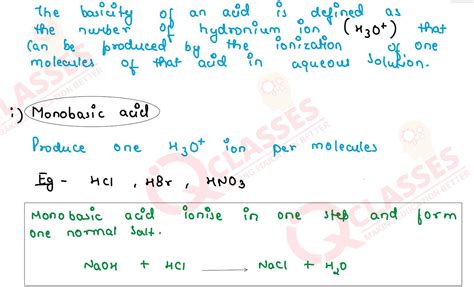 The basicity of an acid is defined as
the number of hydronium ion (H₃O⁺) that
can be produced by the ionization of one
molecules of that acid in aqueous solution.
i) Monobasic acid
Produce one H₃O⁺ ion per molecules
Eg - HCl , HBr , HNO₃
Monobasic acid ionise in one step and form
one normal salt.
NaOH + HCl ⟶ NaCl + H₂O
CLASSES
CLASSES